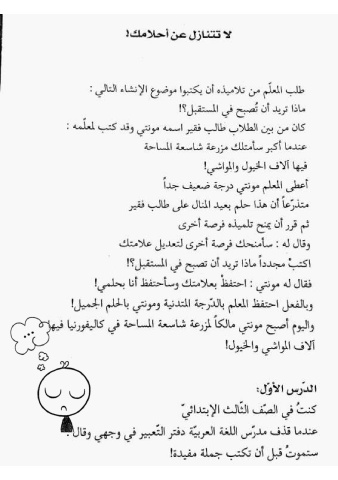 لا تتنازل عن أحلامك!
طلب المعلّم من تلاميذه أن يكتبوا موضوع الإنشاء التالي :
ماذا تريد أن تُصبح في المستقبل؟!
كان من بين الطلاب طالب فقير اسمه مونتي وقد كتب لمعلّمه :
عندما أكبر سأمتلك مزرعة شاسعة المساحة
فيها آلاف الخيول والمواشي!
أعطى المعلم مونتي درجة ضعيف جداً
متذرّعاً أن هذا حلم بعيد المنال على طالب فقير
ثم قرر أن يمنح تلميذه فرصة أخرى
وقال له : سأمنحك فرصة أخرى لتعديل علامتك
اكتبْ مجدداً ماذا تريد أن تصبح في المستقبل؟!
فقال له مونتي : احتفظْ بعلامتك وسأحتفظ أنا بحلمي!
وبالفعل احتفظ المعلم بالدّرجة المتدنية ومونتي بالحلم الجميل!
واليوم أصبح مونتي مالكاً لمزرعة شاسعة المساحة في كاليفورنيا فيها
آلاف المواشي والخيول!
الدّرس الأوّل:
كنتُ في الصّف الثّالث الإبتدائيّ
عندما قذف مدرّس اللغة العربيّة دفتر التّعبير في وجهي وقال :
ستموتُ قبل أن تكتب جملة مفيدة!